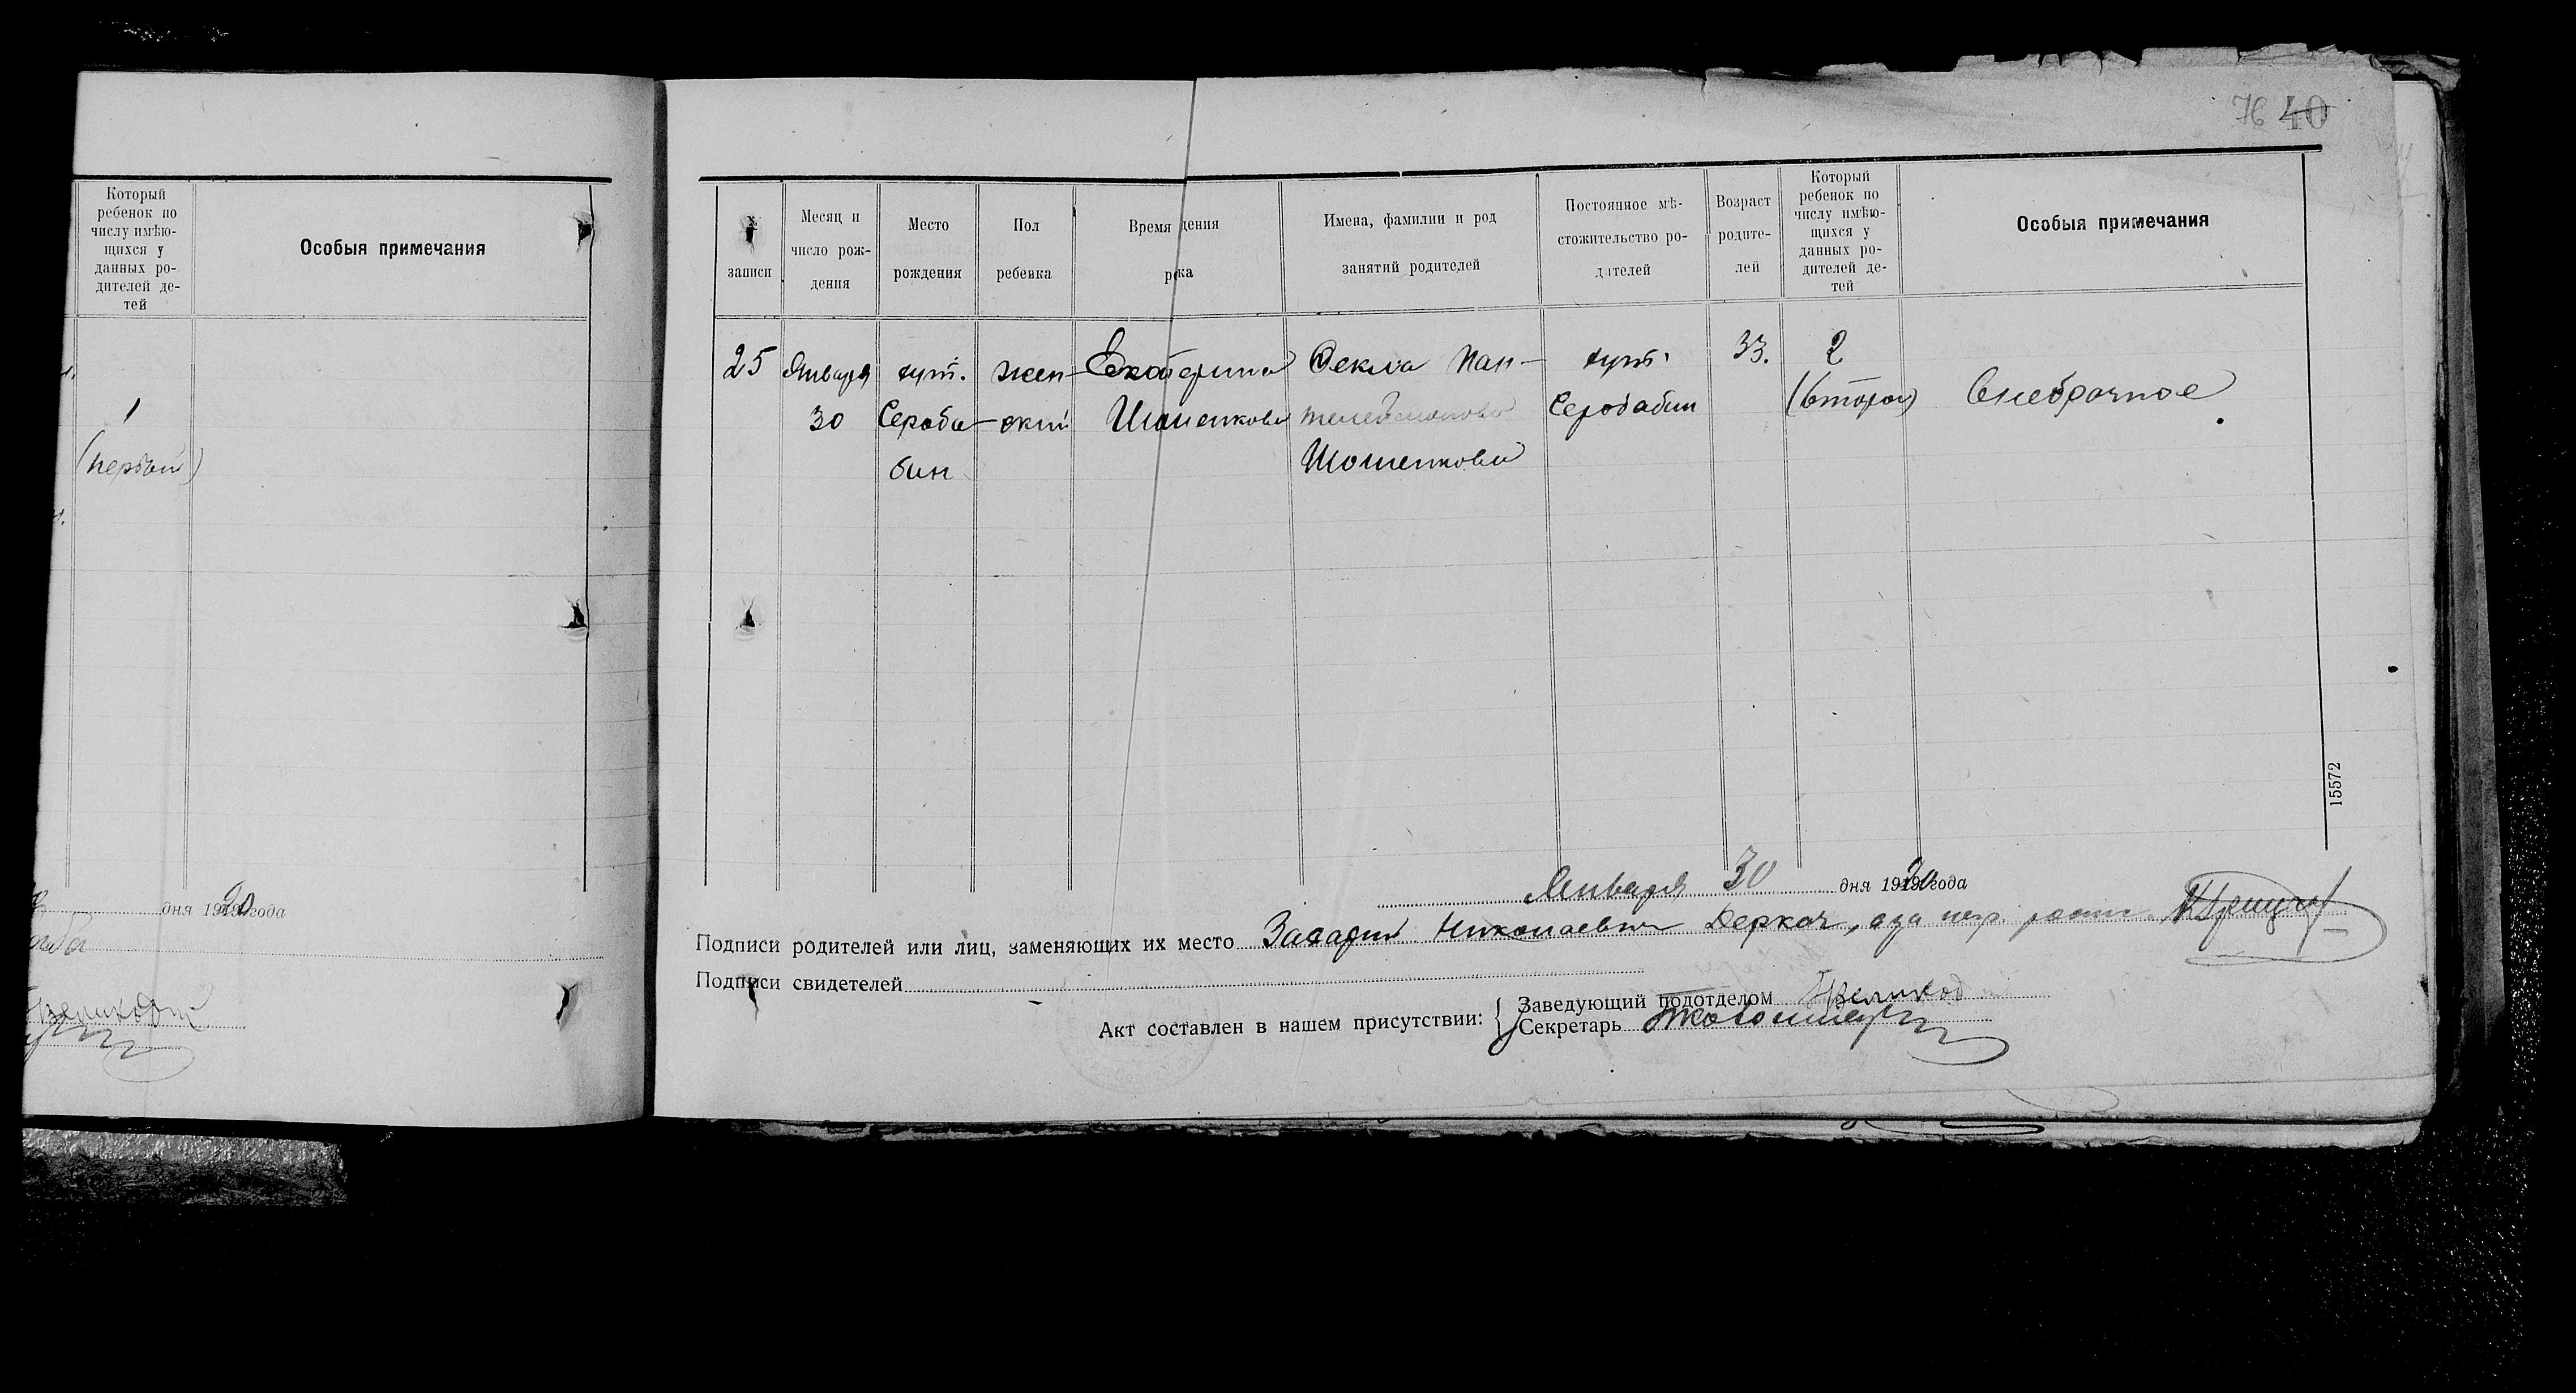 Который
ребенок по
числу имѣю-
щихся у
данных ро-
дителей де-
тей
Особыя примечания
1
(первый)
дня 1920 года
76 40
№
записи
Месяц и
число рож-
дения
Место
рождения
Пол
ребенка
Время дения
рка
Имена, фамилии и род
занятий родителей
Постоянное мѣ-
стожительство ро-
дителей
Возраст
родите-
лей
Который
ребенок по
числу имѣю-
щихся у
данных ро-
дителей де-
тей
Особыя примечания
25
Января
30
хут.
Сероба-
бин
жен-
ский
Екатерина
Шопенкова
Фекла Пан-
телеймонова
Шопенкова
хут.
Серобабин
33.
2
(второй)
Внебрачное
15572
Января 30 дня 1920 года
Подписи родителей или лиц, заменяющих их место Николаевич Деркач, а за негр.
Подписи свидетелей
Акт составлен в нашем присутствии:
Заведующий подотделом
Секретарь